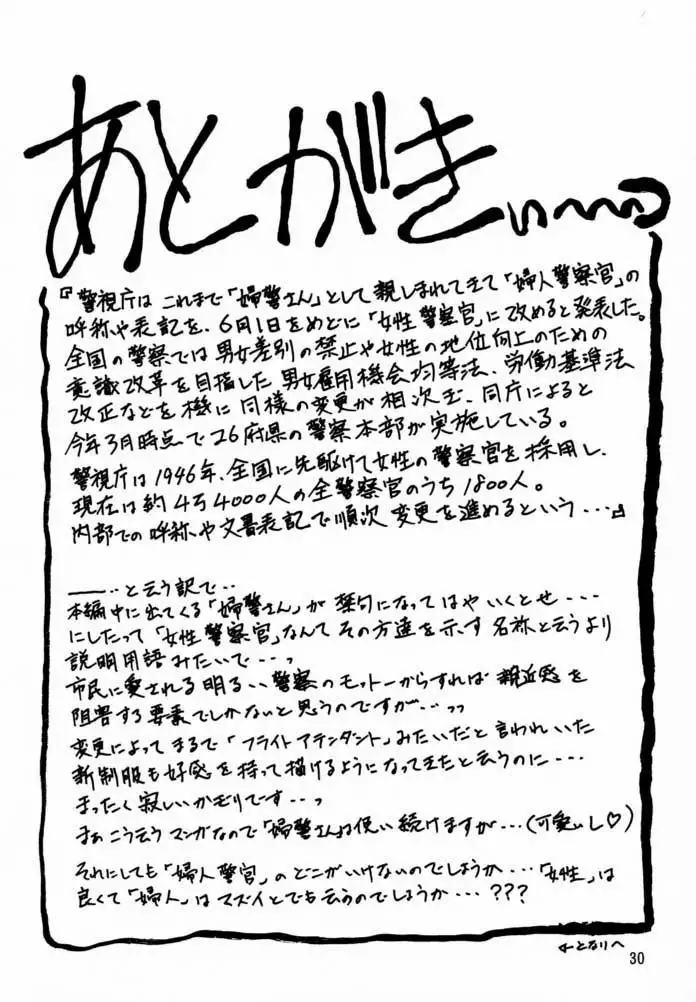 あとがきぃ〜〜〜っ
『警視庁は これまで「婦警さん」として親しまれてきて「婦人警察官」の
呼称や表記を、6月1日をめどに「女性警察官」に改めると発表した。
全国の警察では男女差別の禁止や女性の地位向上のための
意識改革を目指した男女雇用機会均等法、労働基準法
改正などを機に同様の変更が相次ぎ、同庁によると
今年3月時点で26府県の警察本部が実施している。
警視庁は1946年、全国に先駆けて女性の警察官を採用し、
現在は約4万4000人の全警察官のうち1800人。
内部での呼称や文書表記で順次変更を進めるという...』
———‥と云う訳で‥
本編中に出てくる「婦警さん」が禁句になってはやいくとせ...
にしたって「女性警察官」なんてその方達を示す名称と云うより
説明用語みたいで...っ
市民に愛される明るい警察のモットーからすれば親近感を
阻害する要素でしかないと思うのですが...っっ
変更によってまるで「フライトアテンダント」みたいだと言われいた
新制服も好感を持って描けるようになってきたと云うのに...
まったく寂しいかぎりです...っ
まぁこう云うマンガなので「婦警さん」は使い続けますが...(可愛いし♡)
それにしても「婦人警官」のどこがいけないのでしょうか...「女性」は
良くて「婦人」はマズイとでも云うのでしょうか...???
となりへ
30